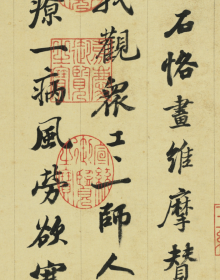 石恪畫維摩贊
我觀衆工工一師人
療一病風勞欲寒